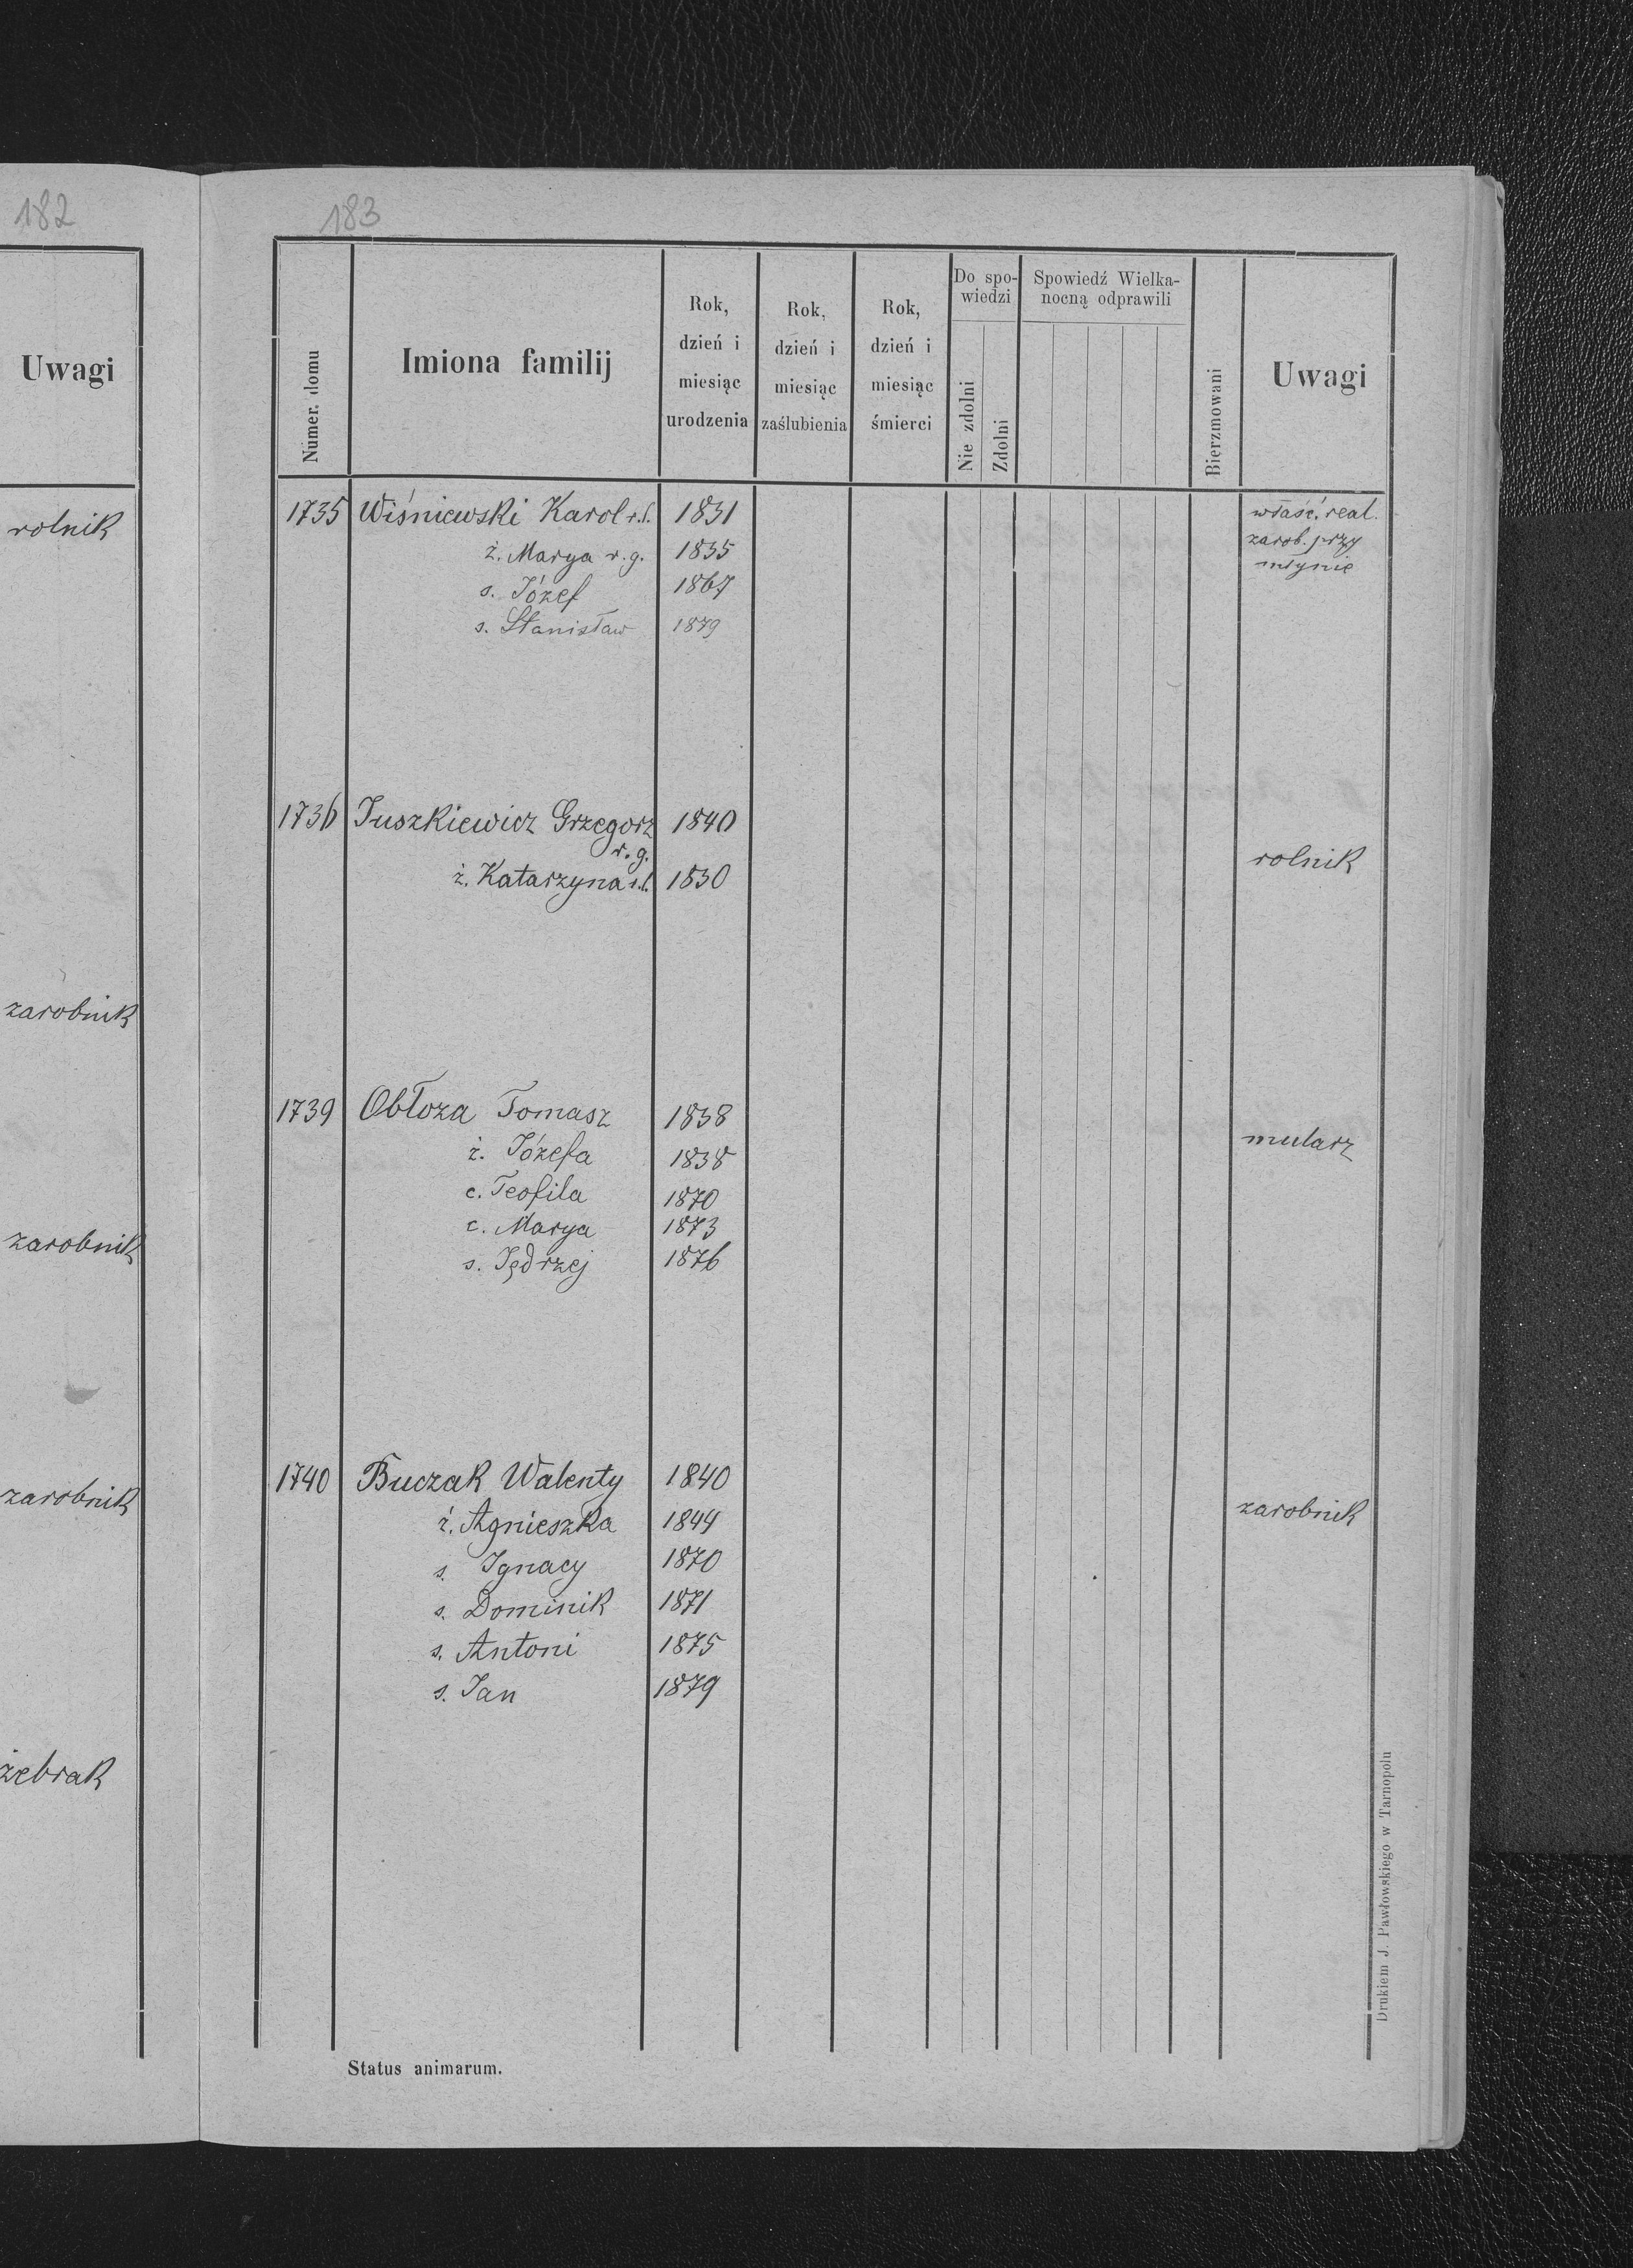 182
Uwagi
rolnik
zarobnik
zarobnik
zarobnik
żebrak
183
Numer. domu
Imiona familij
Rok, dzień i miesiąc urodzenia
Rok, dzień i miesiąc zaślubienia
Rok, dzień i miesiąc śmierci
Do spo-
wiedzi
Nie zdolni
Zdolni
Spowiedź Wielka-
nocną odprawili
Bierzmowani
Uwagi
1735 Wiśniewski Karol r.ł. 1831 właść. real.
ż. Marya r. g. 1835 zarob. przy
młynie
s. Józef 1867
s. Stanisław 1879
1736 Juszkiewicz Grzegorz 1840
r. g.
rolnik
ż. Katarzyna r.ł. 1830
1739 Obłoza Tomasz 1838
mularz
ż. Józefa 1838
c. Teofila 1870
c. Marya 1873
s. Jędrzej 1876
1740 Buczak Walenty 1840
zarobnik
ż. Agnieszka 1844
s. Ignacy 1870
s. Dominik 1871
s. Antoni 1875
s. Jan 1879
Status animarum.
Drukiem J. Pawłowskiego w Tarnopolu